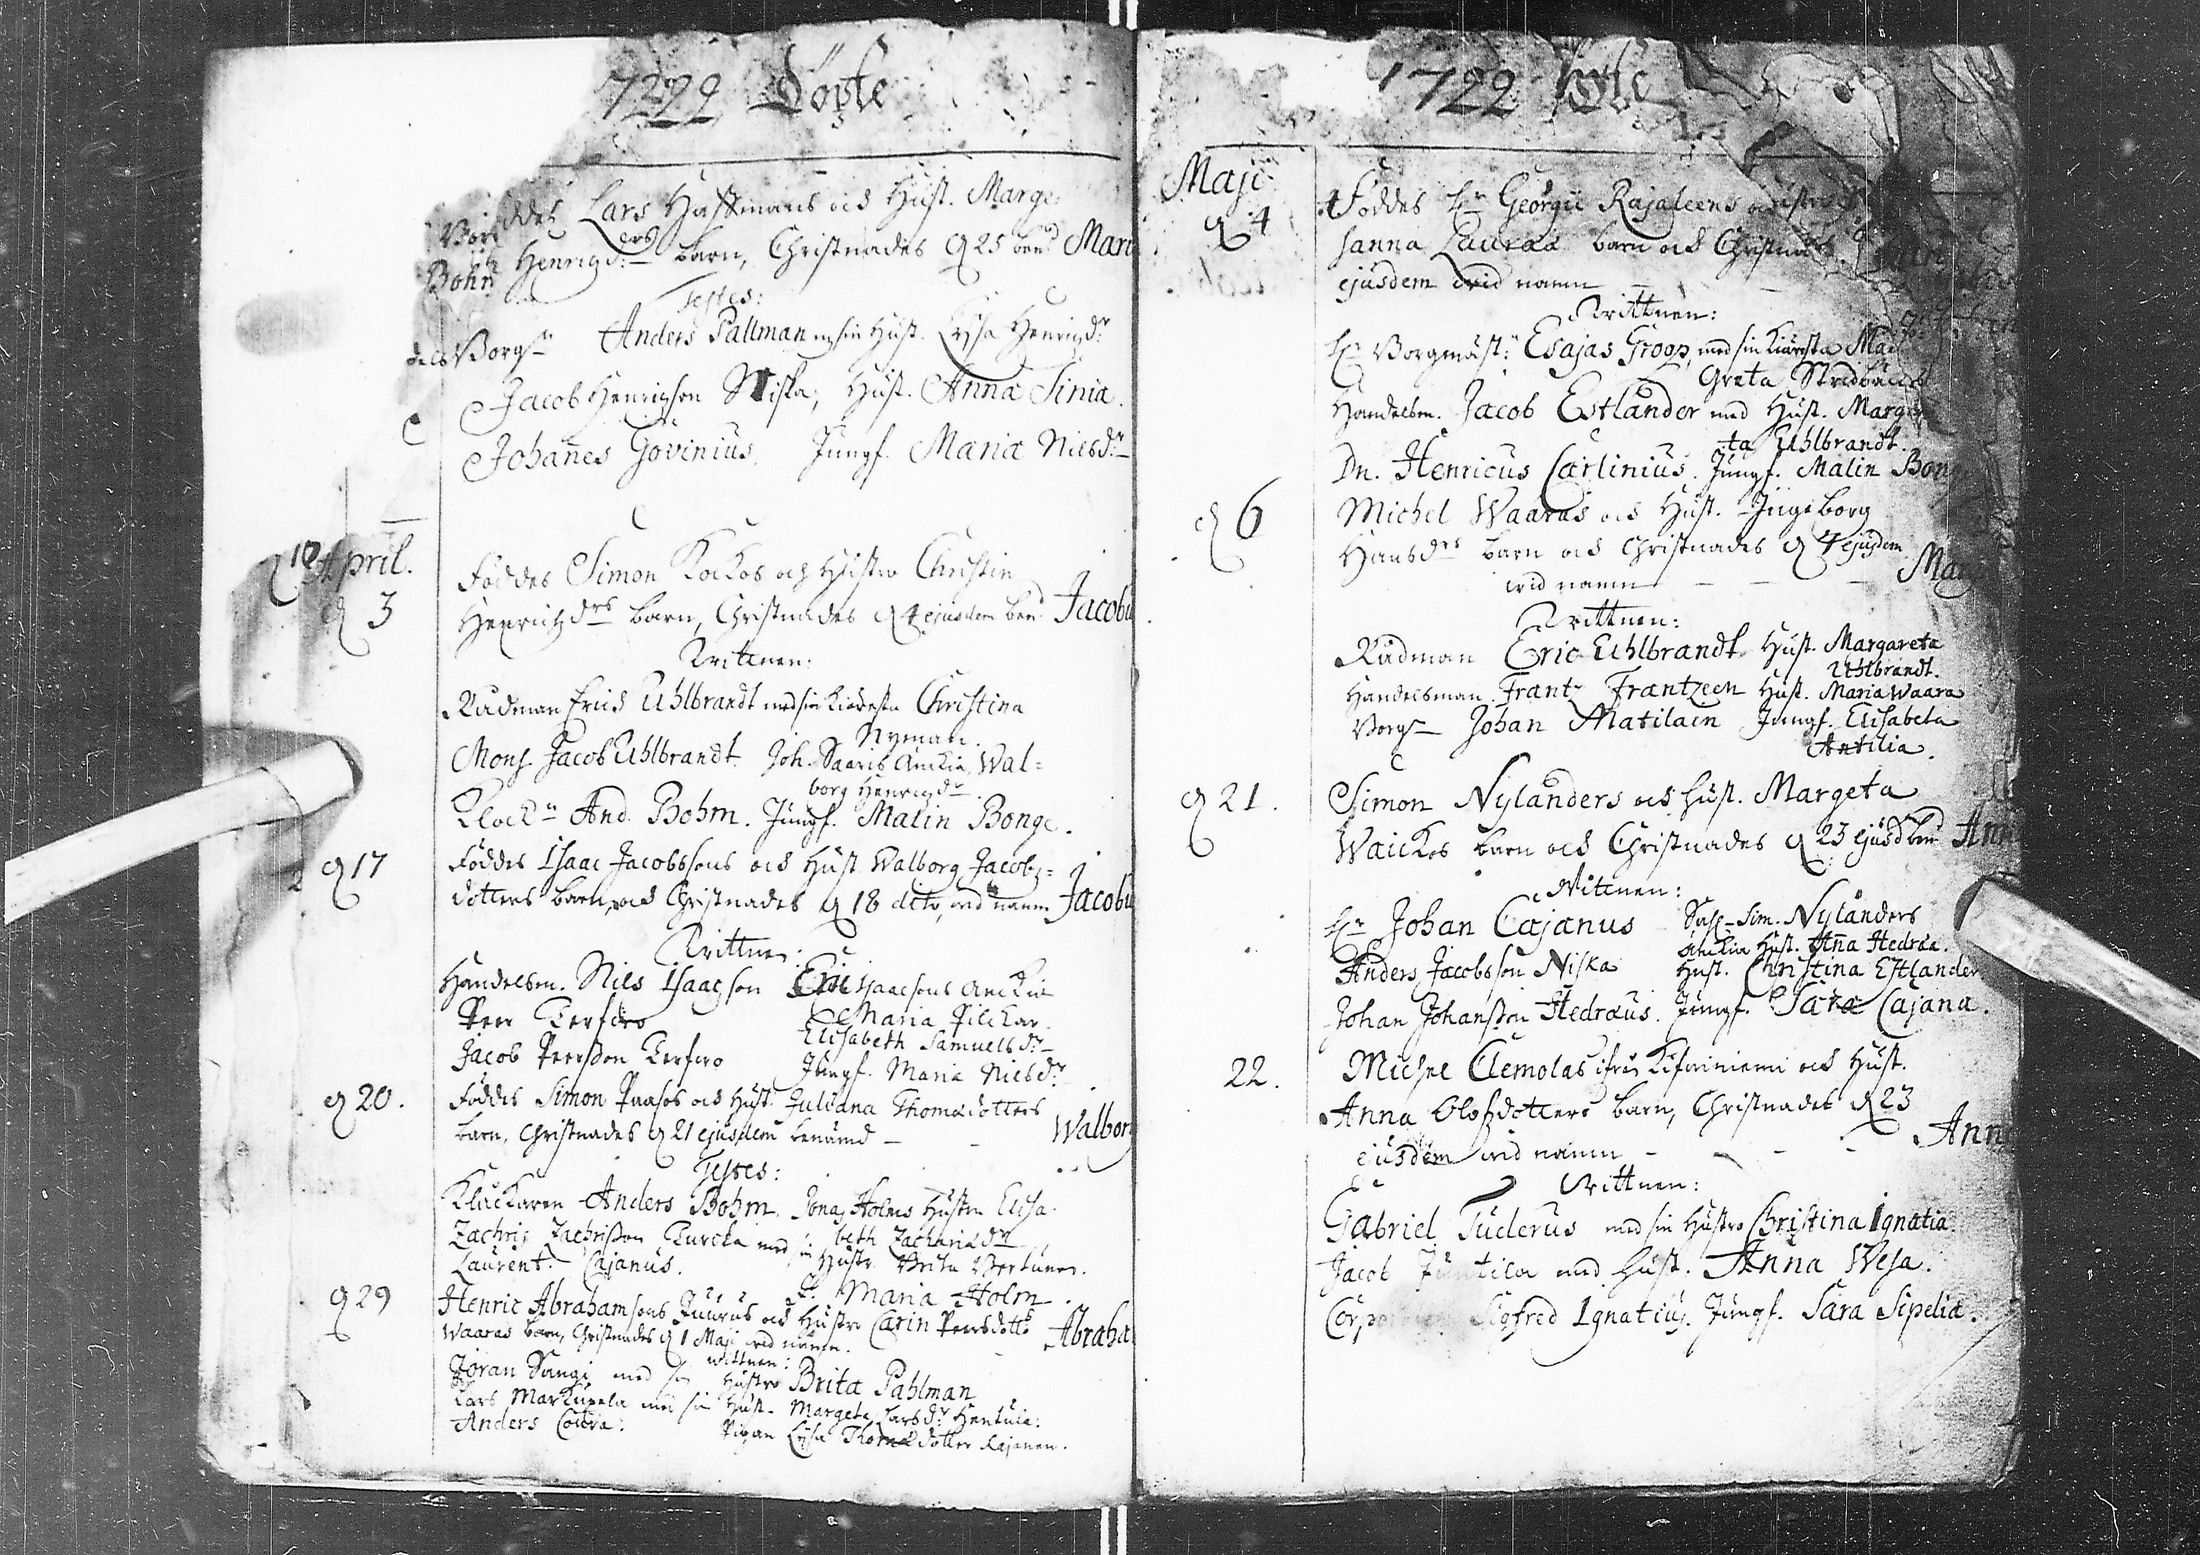 1722 Döpte
Föddes Lars Hassmans och Hust. Marge-
Henrigdrs barn, Christnades d 25 bend Mari
Testes:
Borgn Anders Pallman m sin Hust. Lysa Henrigdr
Jacob Henrigson Niska, Hust. Anna Sinia.
Johannes Govinius. Jungf. Maria Nilsdr
April.
d 3
Föddes Simon Kockos och Hustro Christin
Henrichdrs barn, Christnades d 4 ejusdem bend Jacobu
Wittnen:
Rådman Erich Uhlbrandt med sin Kiäresta Christina
Nyman.
Mons. Jacob Uhlbrandt. Joh. Saaris Änckia, Wal=
borg Henrigdr
Klockn And. Bohm. Jungf. Malin Bonge.
d 17
Föddes Isaac Jacobssons och Hust Walborg Jacobs=
dotters barn, och Christnades d 18 dito, wid namn Jacobu
Wittnen:
Handelsm. Nils Isaacson Eric Isaacsons Änckia
Maria Pilckar.
Peer Kerfwo Elisabeth Samuelsdr
Jacob Peersson Kerfwo Jungf. Maria Nilsdr
d 20.
Föddes Simon Paasos och Hust. Juliana Thomædotters
barn, Christnades d 21 ejusdem benämd - - Walborg
Testes:
Kluckaren Anders Bohm. Jonas Holms Hustro Elisa-
beth Zachariædr
Zachris Zachrisson Kurcka med sin Hustr. Brita Vertunen.
Laurent. Cajanus. J. Maria Holm.
d 29
Henric Abrahamsons Juurus och Hustro Carin Peersdottr
Waaras barn, Christnades d 1 Maji wid namn. - Abraha
Wittnen:
Jöran Sangi med sin Hustro Brita Pahlman
Lars Markupela med sin Hust. Margeta Larsdr Hentuia:
Anders Cowra: Pigan Lysa Thomædotter Kajanen.
1722 Döpte
Maji
d 4
Föddes Hr Georgii Rajaleens och Hustro
sanna Lauræa barn och Christnades
ejusdem wid namn
Wittnen:
Hr Borgmäst: Esajas Groop, med sin Kiäresta
Greta Stridbäck
Handelsm. Jacob Estlander med Hust. Marge
ta Uhlbrandt.
Dn. Henricus Carlinius. Jungf. Malin Bong
d 6
Michel Waaras och Hust. Ingeborg
Hansdrs barn och Christnades d 4 ejusdem
wid namn - - - Mar
Wittnen:
Rådman Eric Uhlbrandt Hust. Margareta
Uhlbrandt.
Handelsman Frantz Frantzeen Hust. Maria Waara
Borgn Johan Matilain Jungf. Elisabeta
Antilia.
d 21.
Simon Nylanders och Hust. Margeta
Waickos barn och Christnades d 23 ejusd bend Ann
Wittnen:
Hr Johan Cajanus Sal. Sim. Nylanders
Änckia Hust. Anna Hedræa.
Anders Jacobsson Niska Hust. Christina Estlander
Johan Johansson Hedræus. Jungf. Sara Cajana.
22.
Michel Clemolas ifrån och Hust.
Anna Olofsdotters barn, Christnades d 23
ejusdem wid namn - - - Ann
Wittnen:
Gabriel Tuderus med sin Hustro Christina Ignatia.
Jacob Juntila med Hust. Anna Wesa.
Sigfred Ignatius. Jungf. Sara Sipelia.